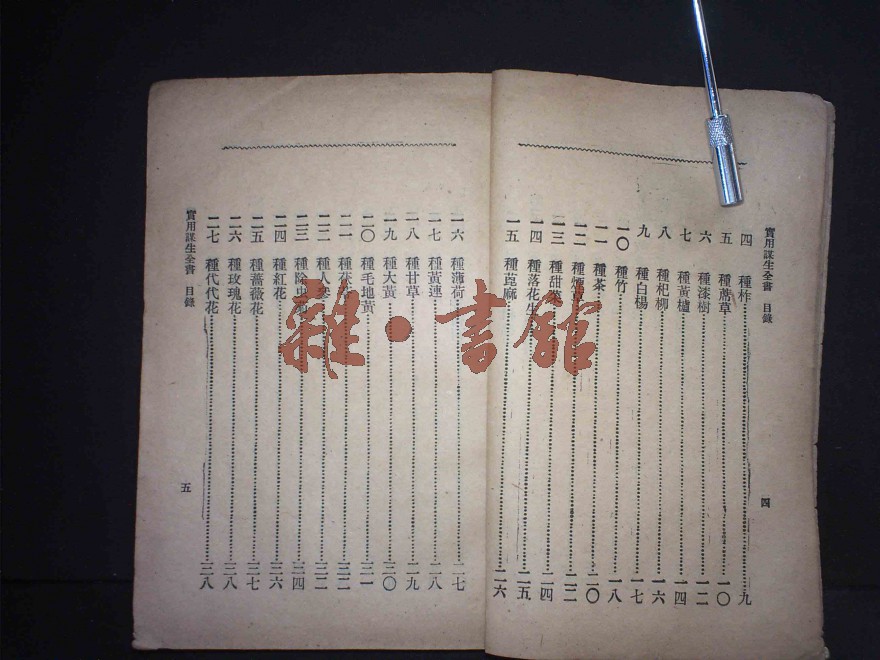 實用謀生全書 目錄
四 種柞 九
五 種蓆草 一〇
六 種漆樹 一二
七 種黃櫨 一四
八 種杞柳 一六
九 種白楊 一七
一〇 種竹 一八
一一 種茶 二〇
一二 種煙草 二二
一三 種甜菜 二四
一四 種落花生 二五
一五 種萞麻 二六
四
一六 種薄荷 二七
一七 種黃連 二八
一八 種甘草 二九
一九 種大黃 三〇
二〇 種毛地黃 三一
二一 種 三二
二二 種人參 三三
二三 種除虫 三四
二四 種紅花 三六
二五 種薔薇花 三七
二六 種玫瑰花 三八
二七 種代代花 三八
實用謀生全書 目錄
五
雜·書館